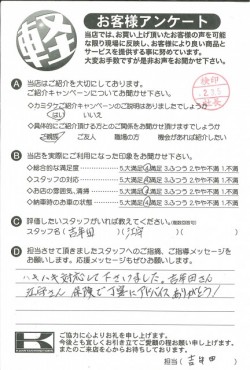 軽
お客様アンケート
当店では、お買い上げ頂いたお客様の声を可能
な限り現場に反映し、お客様により良い商品と
サービスを提供する事に努めています。
大変お手数ですが是非お声をお聞かせ下さい。
A 当店はご紹介を大切にしております。
ご紹介キャンペーンについてお聞かせ下さい。
◇カミタケご紹介キャンペーンのご説明はありましたでしょうか
はい いいえ
◇具体的にご紹介頂ける方とのご関係をお聞かせ頂けますでしょうか
ご親族 ご友人 職場の方 機会があれば紹介したい
検印
2.3.5
社長
B 当店を実際にご利用になった印象をお聞かせ下さい。
◇総合的な満足度 5.大満足 4.満足 3.ふつう 2.やや不満 1.不満
◇スタッフの対応 5.大満足 4.満足 3.ふつう 2.やや不満 1.不満
◇お店の雰囲気、清掃 5.大満足 4.満足 3.ふつう 2.やや不満 1.不満
◇納車時のお車の状態 5.大満足 4.満足 3.ふつう 2.やや不満 1.不満
C 評価したいスタッフがいれば教えてください。(複数回答可)
スタッフ名( 吉年田 )( 江守 )
D 担当させて頂きましたスタッフへのご指摘、ご指導メッセージを
お願いします。応援メッセージもぜひお願いします。
ハキハキ対応して下さいました。吉年田さん
江守さん 保険で丁寧にアドバイスありがとう!
K
ご協力に心よりお礼を申し上げます。
今後とも宜しくお引き立てご愛顧の程お願い申し上げます。
またのご来店を心からお待ちしております。
担当( 吉年田 )